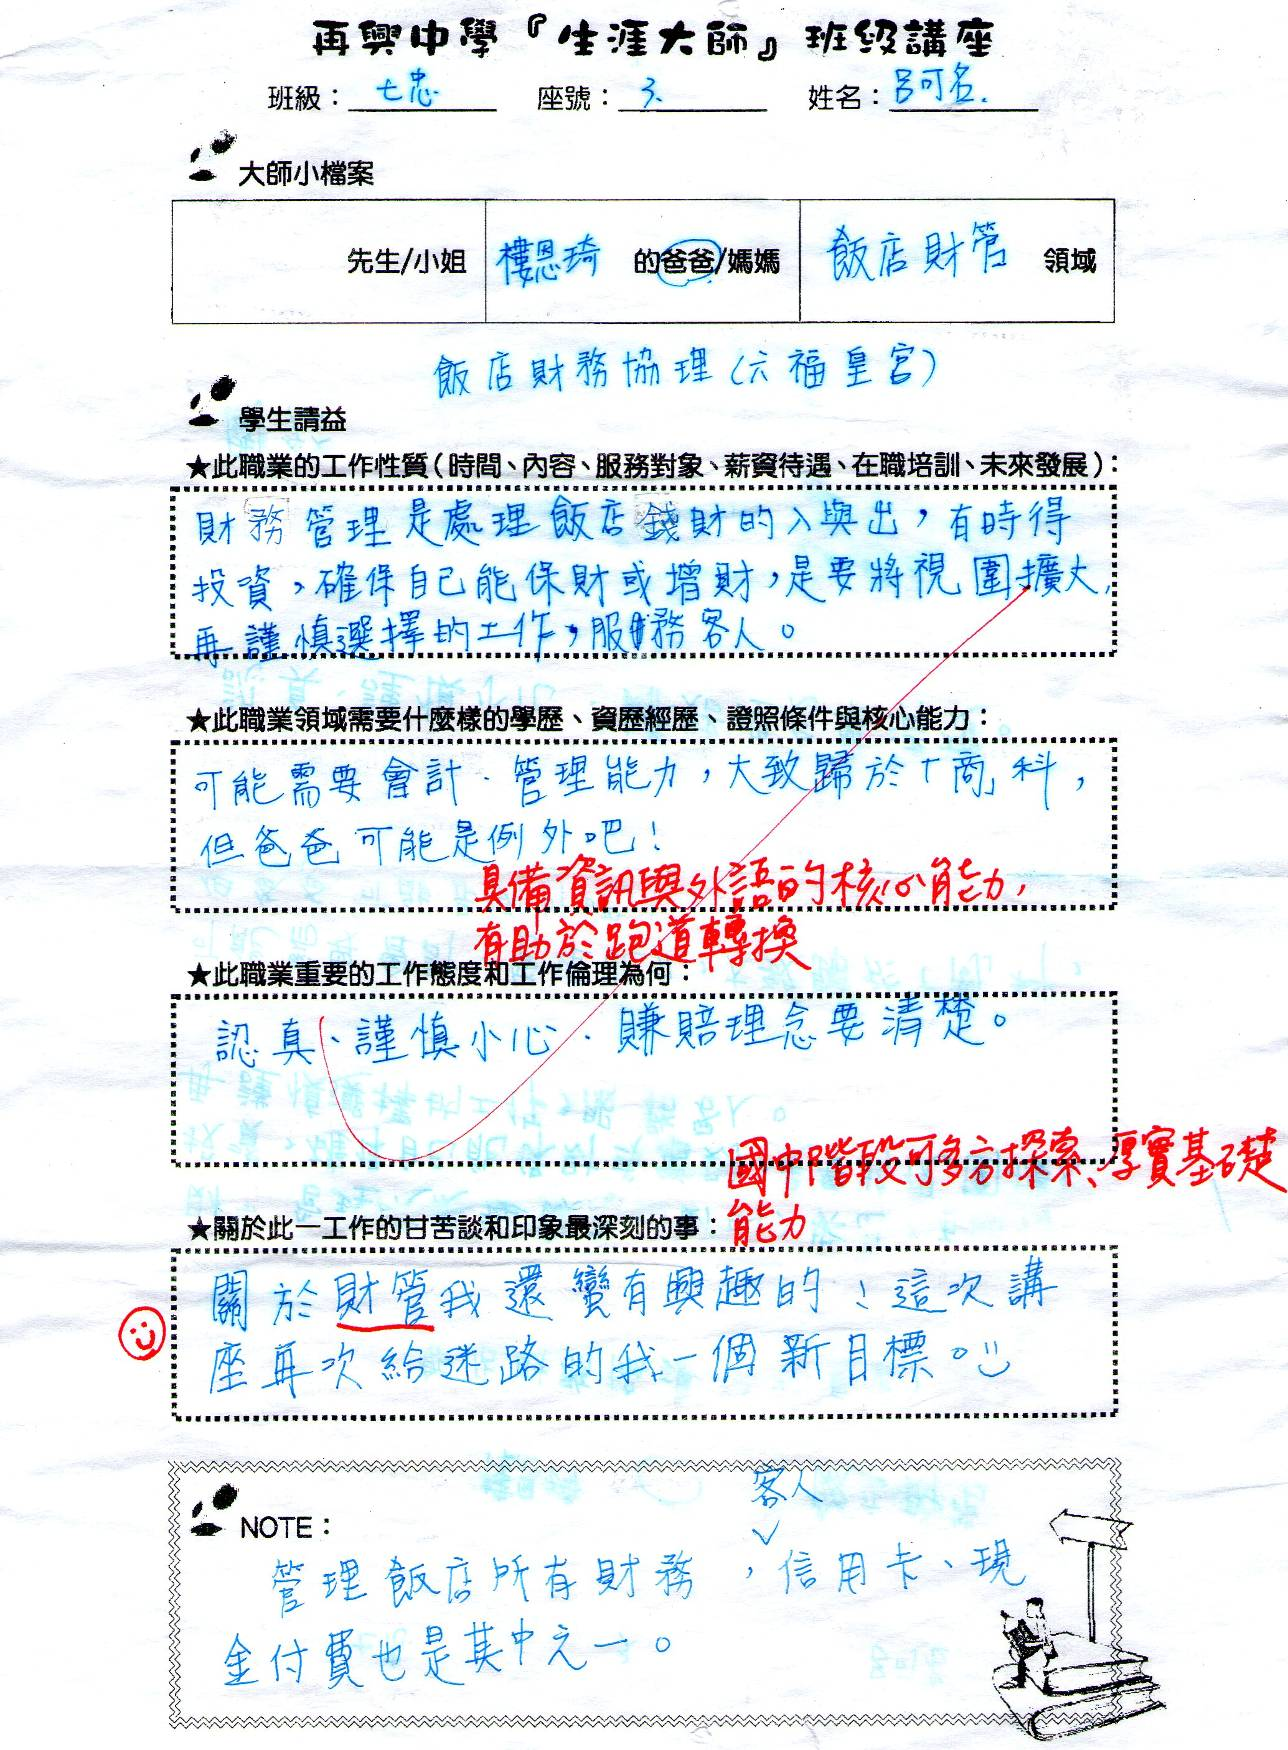 再興中學『生涯大師』班級講座
班級：七忠 座號：3. 姓名：呂可名.
大師小檔案
先生/小姐 樓恩琦 的爸爸/媽媽 飯店財管 領域
飯店財務協理(六福皇宮)
學生請益
★此職業的工作性質(時間、內容、服務對象、薪資待遇、在職培訓、未來發展)：
財務管理是處理飯店錢財的入與出，有時得
投資，確保自己能保財或增財，是要將視圍擴大，
再謹慎選擇的工作，服務客人。
★此職業領域需要什麼樣的學歷、資歷經歷、證照條件與核心能力：
可能需要會計、管理能力，大致歸於「商」科，
但爸爸可能是例外吧！
具備資訊與外語的核心能力，
有助於跑道轉換
★此職業重要的工作態度和工作倫理為何：
認真、謹慎小心、賺賠理念要清楚。
國中階段可多方探索、厚實基礎
能力
★關於此一工作的甘苦談和印象最深刻的事：
關於財管我還蠻有興趣的！這次講
座再次給迷路的我一個新目標。
NOTE：
客人
管理飯店所有財務，信用卡、現
金付費也是其中之一。